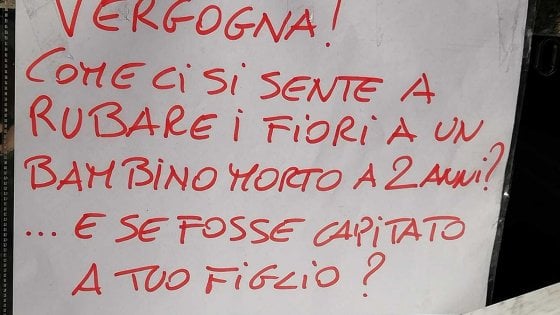 VERGOGNA!
COME CI SI SENTE A
RUBARE i FIORI A UN
BAMBINO MORTO A 2 ANNI?
... E SE FOSSE CAPITATO
A TUO FIGLIO?